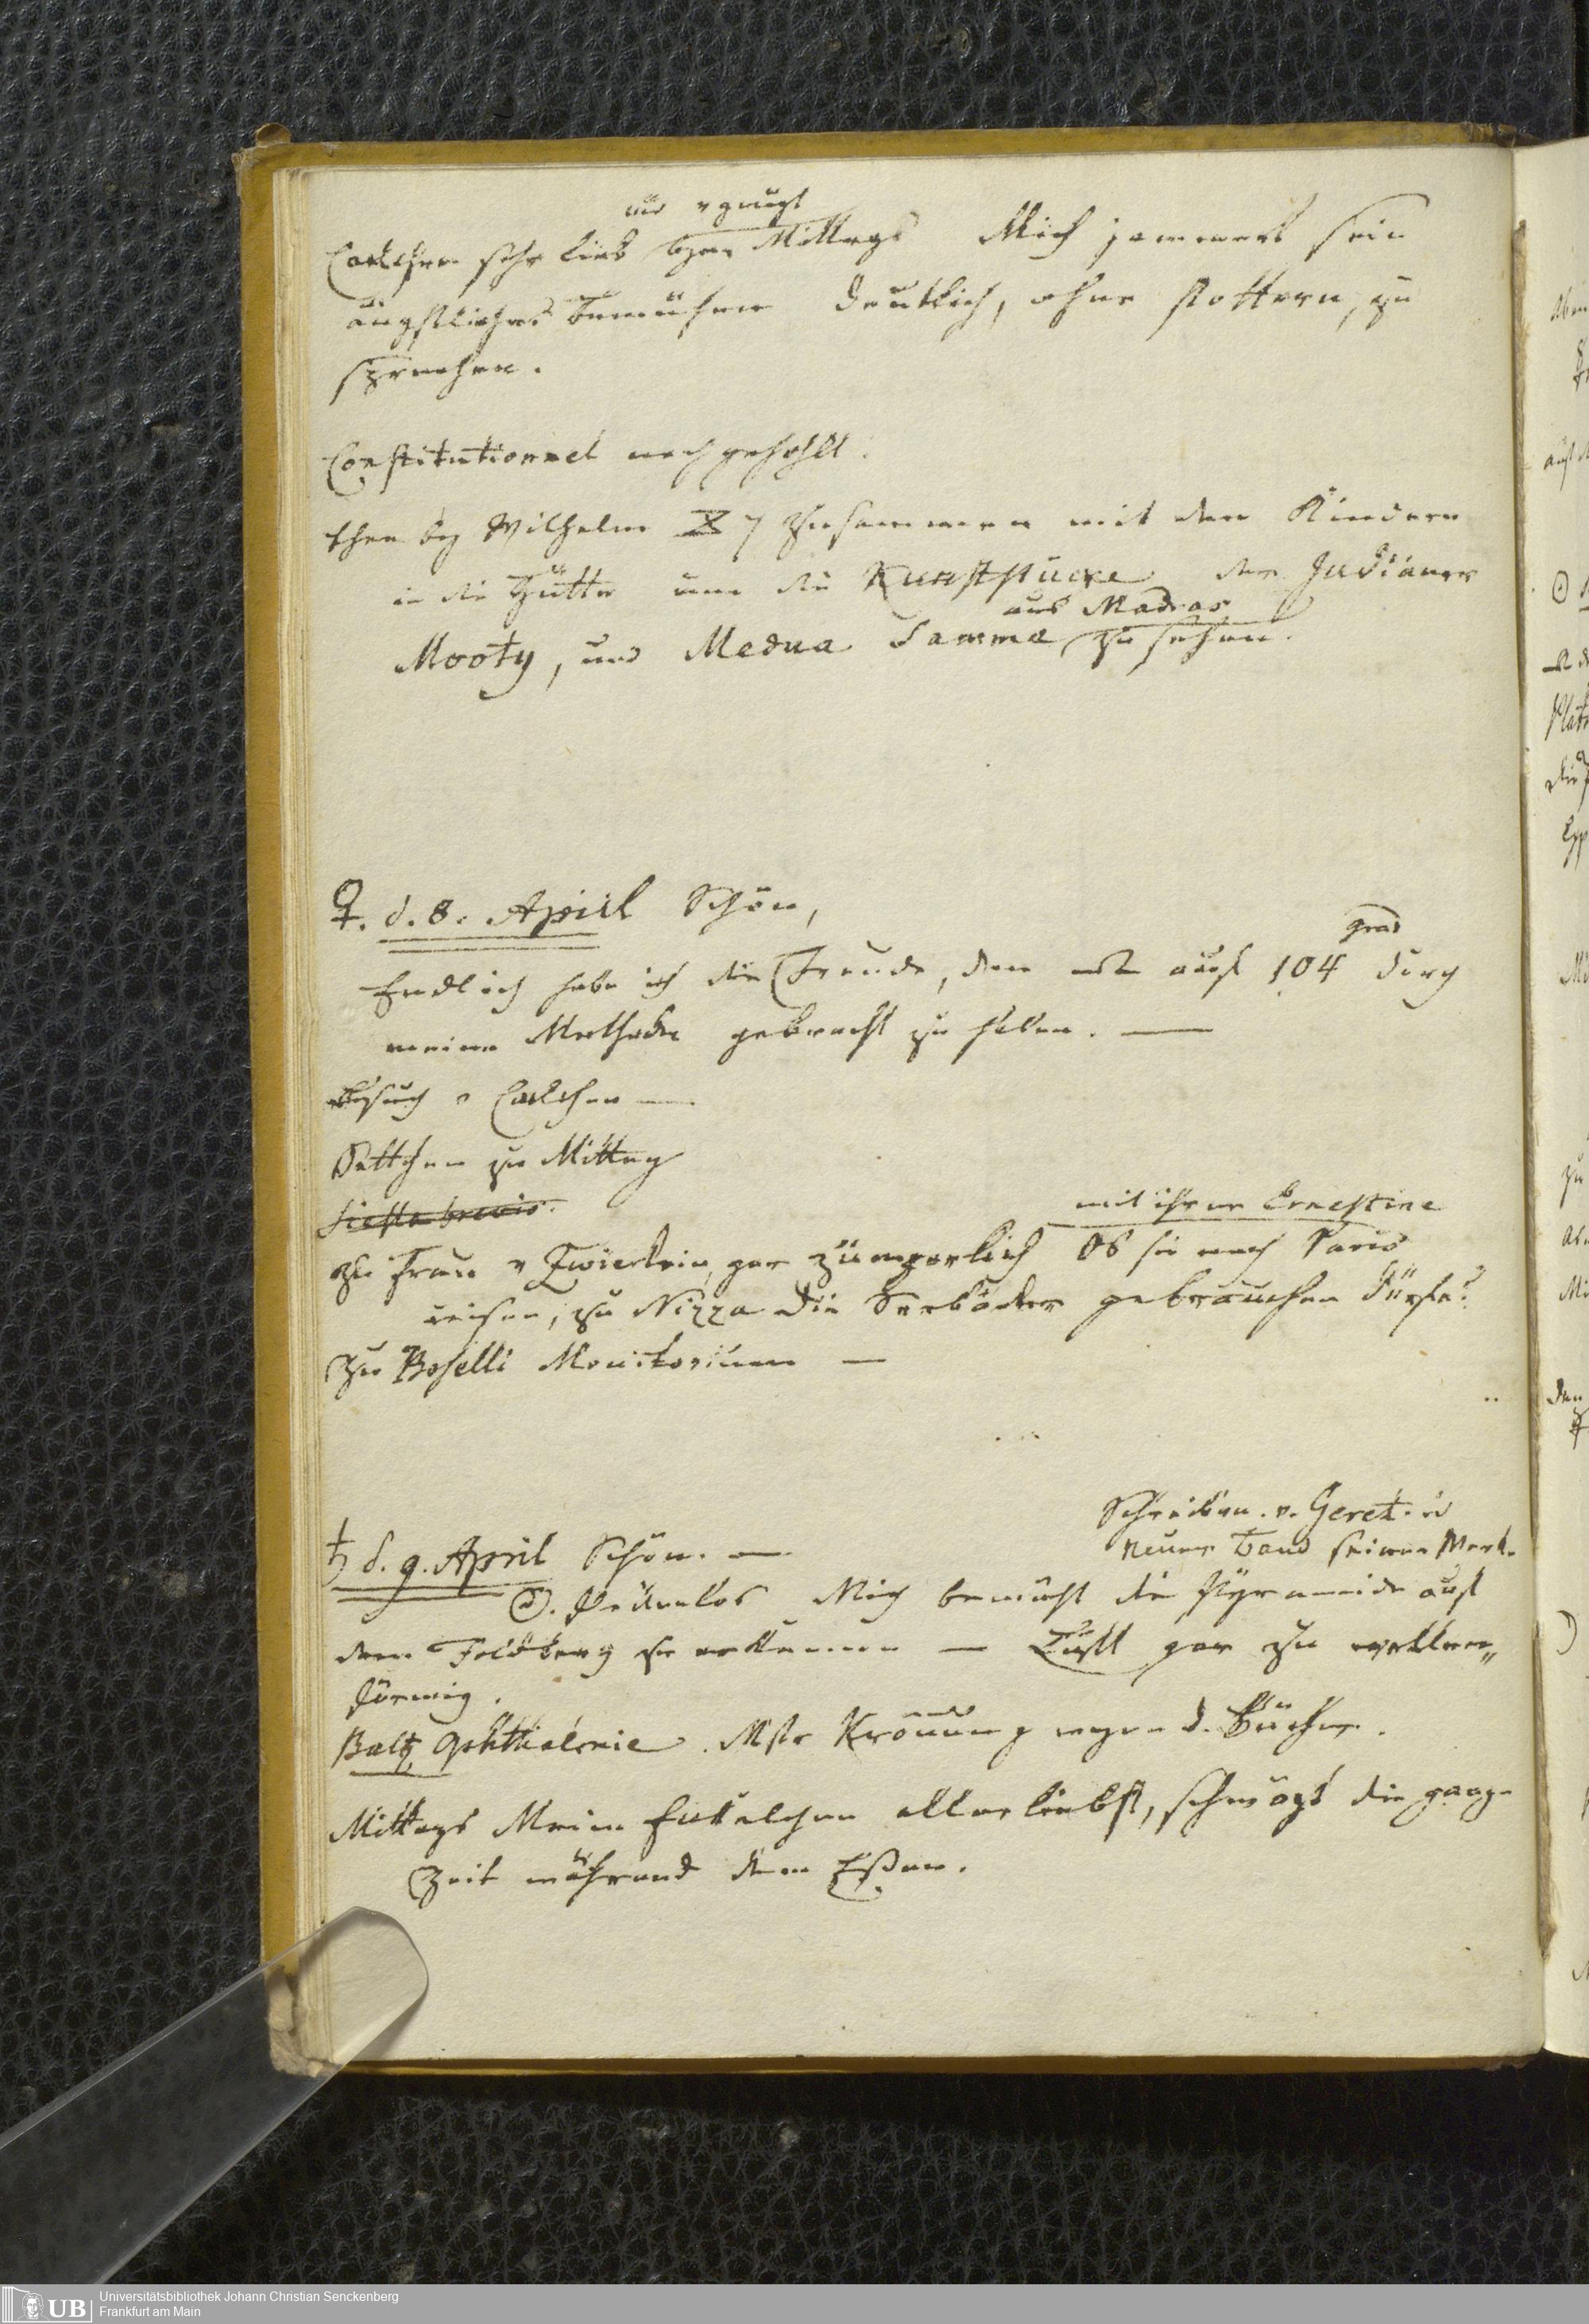 und vgnügt
Carlchen sehr lieb bym Mittags Mich jammert sein
ängstliches Bemühen deutlich, ohne stottern, zu
sprechen.
Constitutionnel nachgehohlt.
thee by Wilhelm 7 zusammen mit den Kindern
in die Hütte um die Kunststücke der Indianer
aus Madras
Mooty, und Medua Samma zu sehen.
♀. d. 8. April Schön,
grad
Endlich habe ich die Freude, den auf 104 durch
meine Methode gebracht zu haben. —
Besuch v Carlchen —
Settchen zu Mittag
Siesta brevis.
mit ihrer Ernestine
zu Frau v Zwierlein, gar zümperlich Ob sie nach Paris
reisen, zu Nizza die Seebäder gebrauchen dürfe?
Zu Boselli Monitorium —
Schreiben. v. Geret. u
♄ d. 9. April Schön. — neuer Band seiner Werk.
☉. Mich bemüht die Pyramide auf
dem Feldberg zu erkennen — Luft gar zu wellen„
förmig.
Baltz Ophthalmie. Mstr Krönung wegen d. Bücher.
Mittags Mein allerliebst, schwäzt die ganze
Zeit während dem Eßen.
Universitätsbibliothek Johann Christian Senckenberg
UB Frankfurt am Main